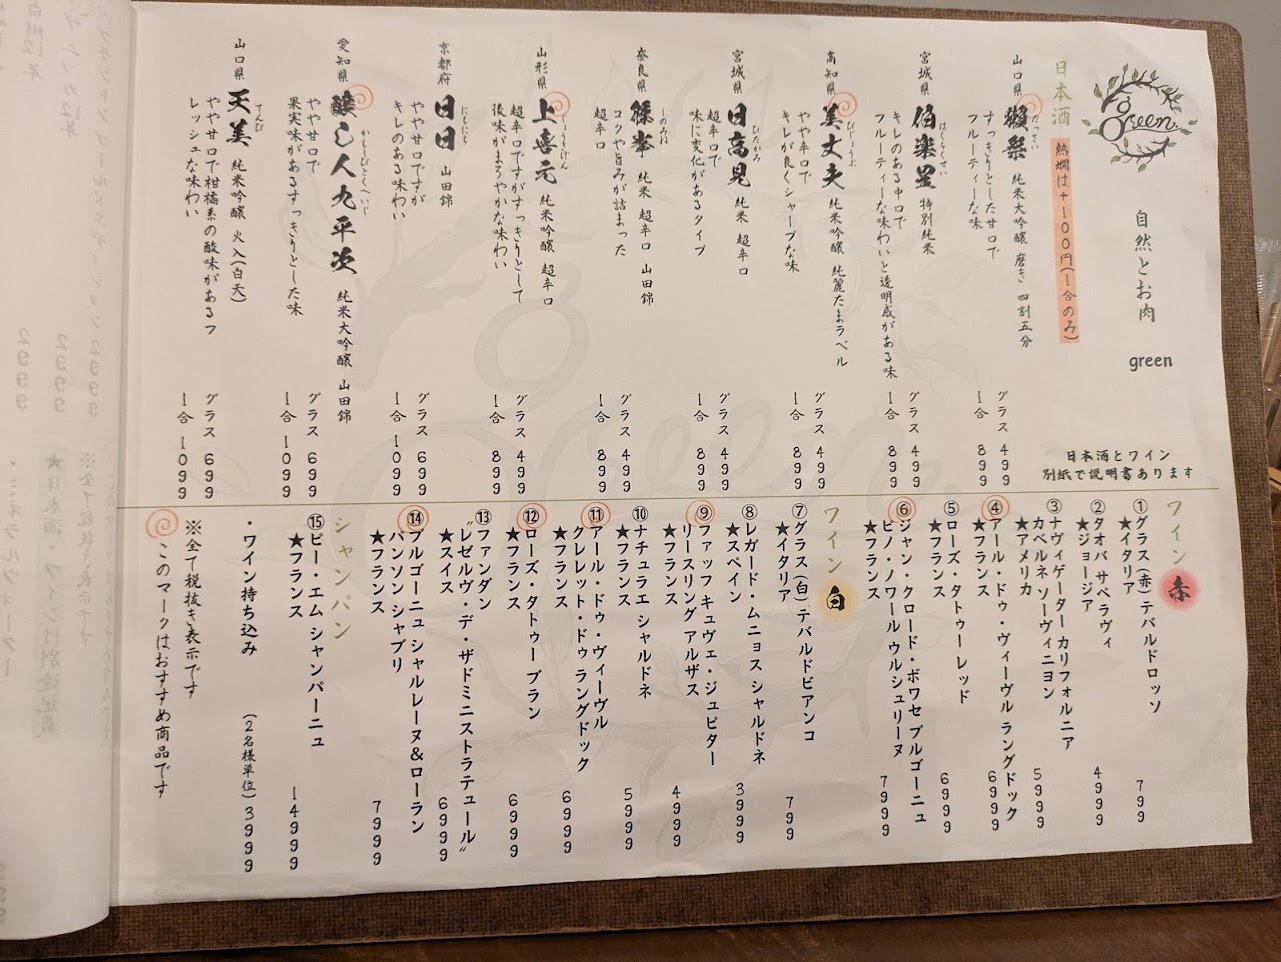 green
自然とお肉
green
日本酒とワイン
別紙で説明書あります
日本酒 熱燗は+100円(1合のみ)
山口県 獺祭 だっさい 純米大吟醸 磨き 四割五分
すっきりとした甘口で
フルーティーな味
グラス 499
1合 899
宮城県 伯楽星 はくらくせい 特別純米
キレのある中口で
フルーティーな味わいと透明感がある味
グラス 499
1合 899
高知県 美丈夫 びじょうぶ 純米吟醸 純麗たまラベル
やや辛口で
キレが良くシャープな味
グラス 499
1合 899
宮城県 日高見 ひたかみ 純米 超辛口
超辛口で
味に変化があるタイプ
グラス 499
1合 899
奈良県 篠峯 しのみね 純米 超辛口 山田錦
コクや旨みが詰まった
超辛口
グラス 499
1合 899
山形県 上喜元 じょうきげん 純米吟醸 超辛口
超辛口ですがすっきりとして
後味がまろやかな味わい
グラス 499
1合 899
京都府 日日 にちにち 山田錦
やや甘口ですが
キレのある味わい
グラス 699
1合 1099
愛知県 醸し人九平次 かもしびとくへいじ 純米大吟醸 山田錦
やや甘口で
果実味があるすっきりとした味
グラス 699
1合 1099
山口県 天美 てんび 純米吟醸 火入(白天)
やや甘口で柑橘系の酸味があるフ
レッシュな味わい
グラス 699
1合 1099
ワイン 赤
①グラス(赤)テバルドロッソ
★イタリア 799
②タオバ サペラヴィ
★ジョージア 4999
③ナヴィゲーター カリフォルニア
カベルネ ソーヴィニヨン
★アメリカ 5999
④アール・ドゥ・ヴィーヴル ラングドック
★フランス 6999
⑤ローズ・タトゥー レッド
★フランス 6999
⑥ジャン・クロード・ボワセ ブルゴーニュ
ピノ・ノワール ウルシュリーヌ
★フランス 7999
ワイン 白
⑦グラス(白)テバルドビアンコ
★イタリア 799
⑧レガード・ムニョス シャルドネ
★スペイン 3999
⑨ファッフ キュヴェ・ジュピター
リースリング アルザス
★フランス 4999
⑩ナチュラエ シャルドネ
★フランス 5999
⑪アール・ドゥ・ヴィーヴル
クレレット・ドゥ ラングドック
★フランス 6999
⑫ローズ・タトゥー ブラン
★フランス 6999
⑬ファンダン
“レゼルヴ・デ・ザドミニストラテュール”
★スイス 6999
⑭ブルゴーニュ シャルレーヌ&ローラン
パンソン シャブリ
★フランス 7999
シャンパン
⑮ピー・エム シャンパーニュ
★フランス 14999
・ワイン持ち込み (2名様単位) 3999
※全て税抜き表示です
このマークはおすすめ商品です